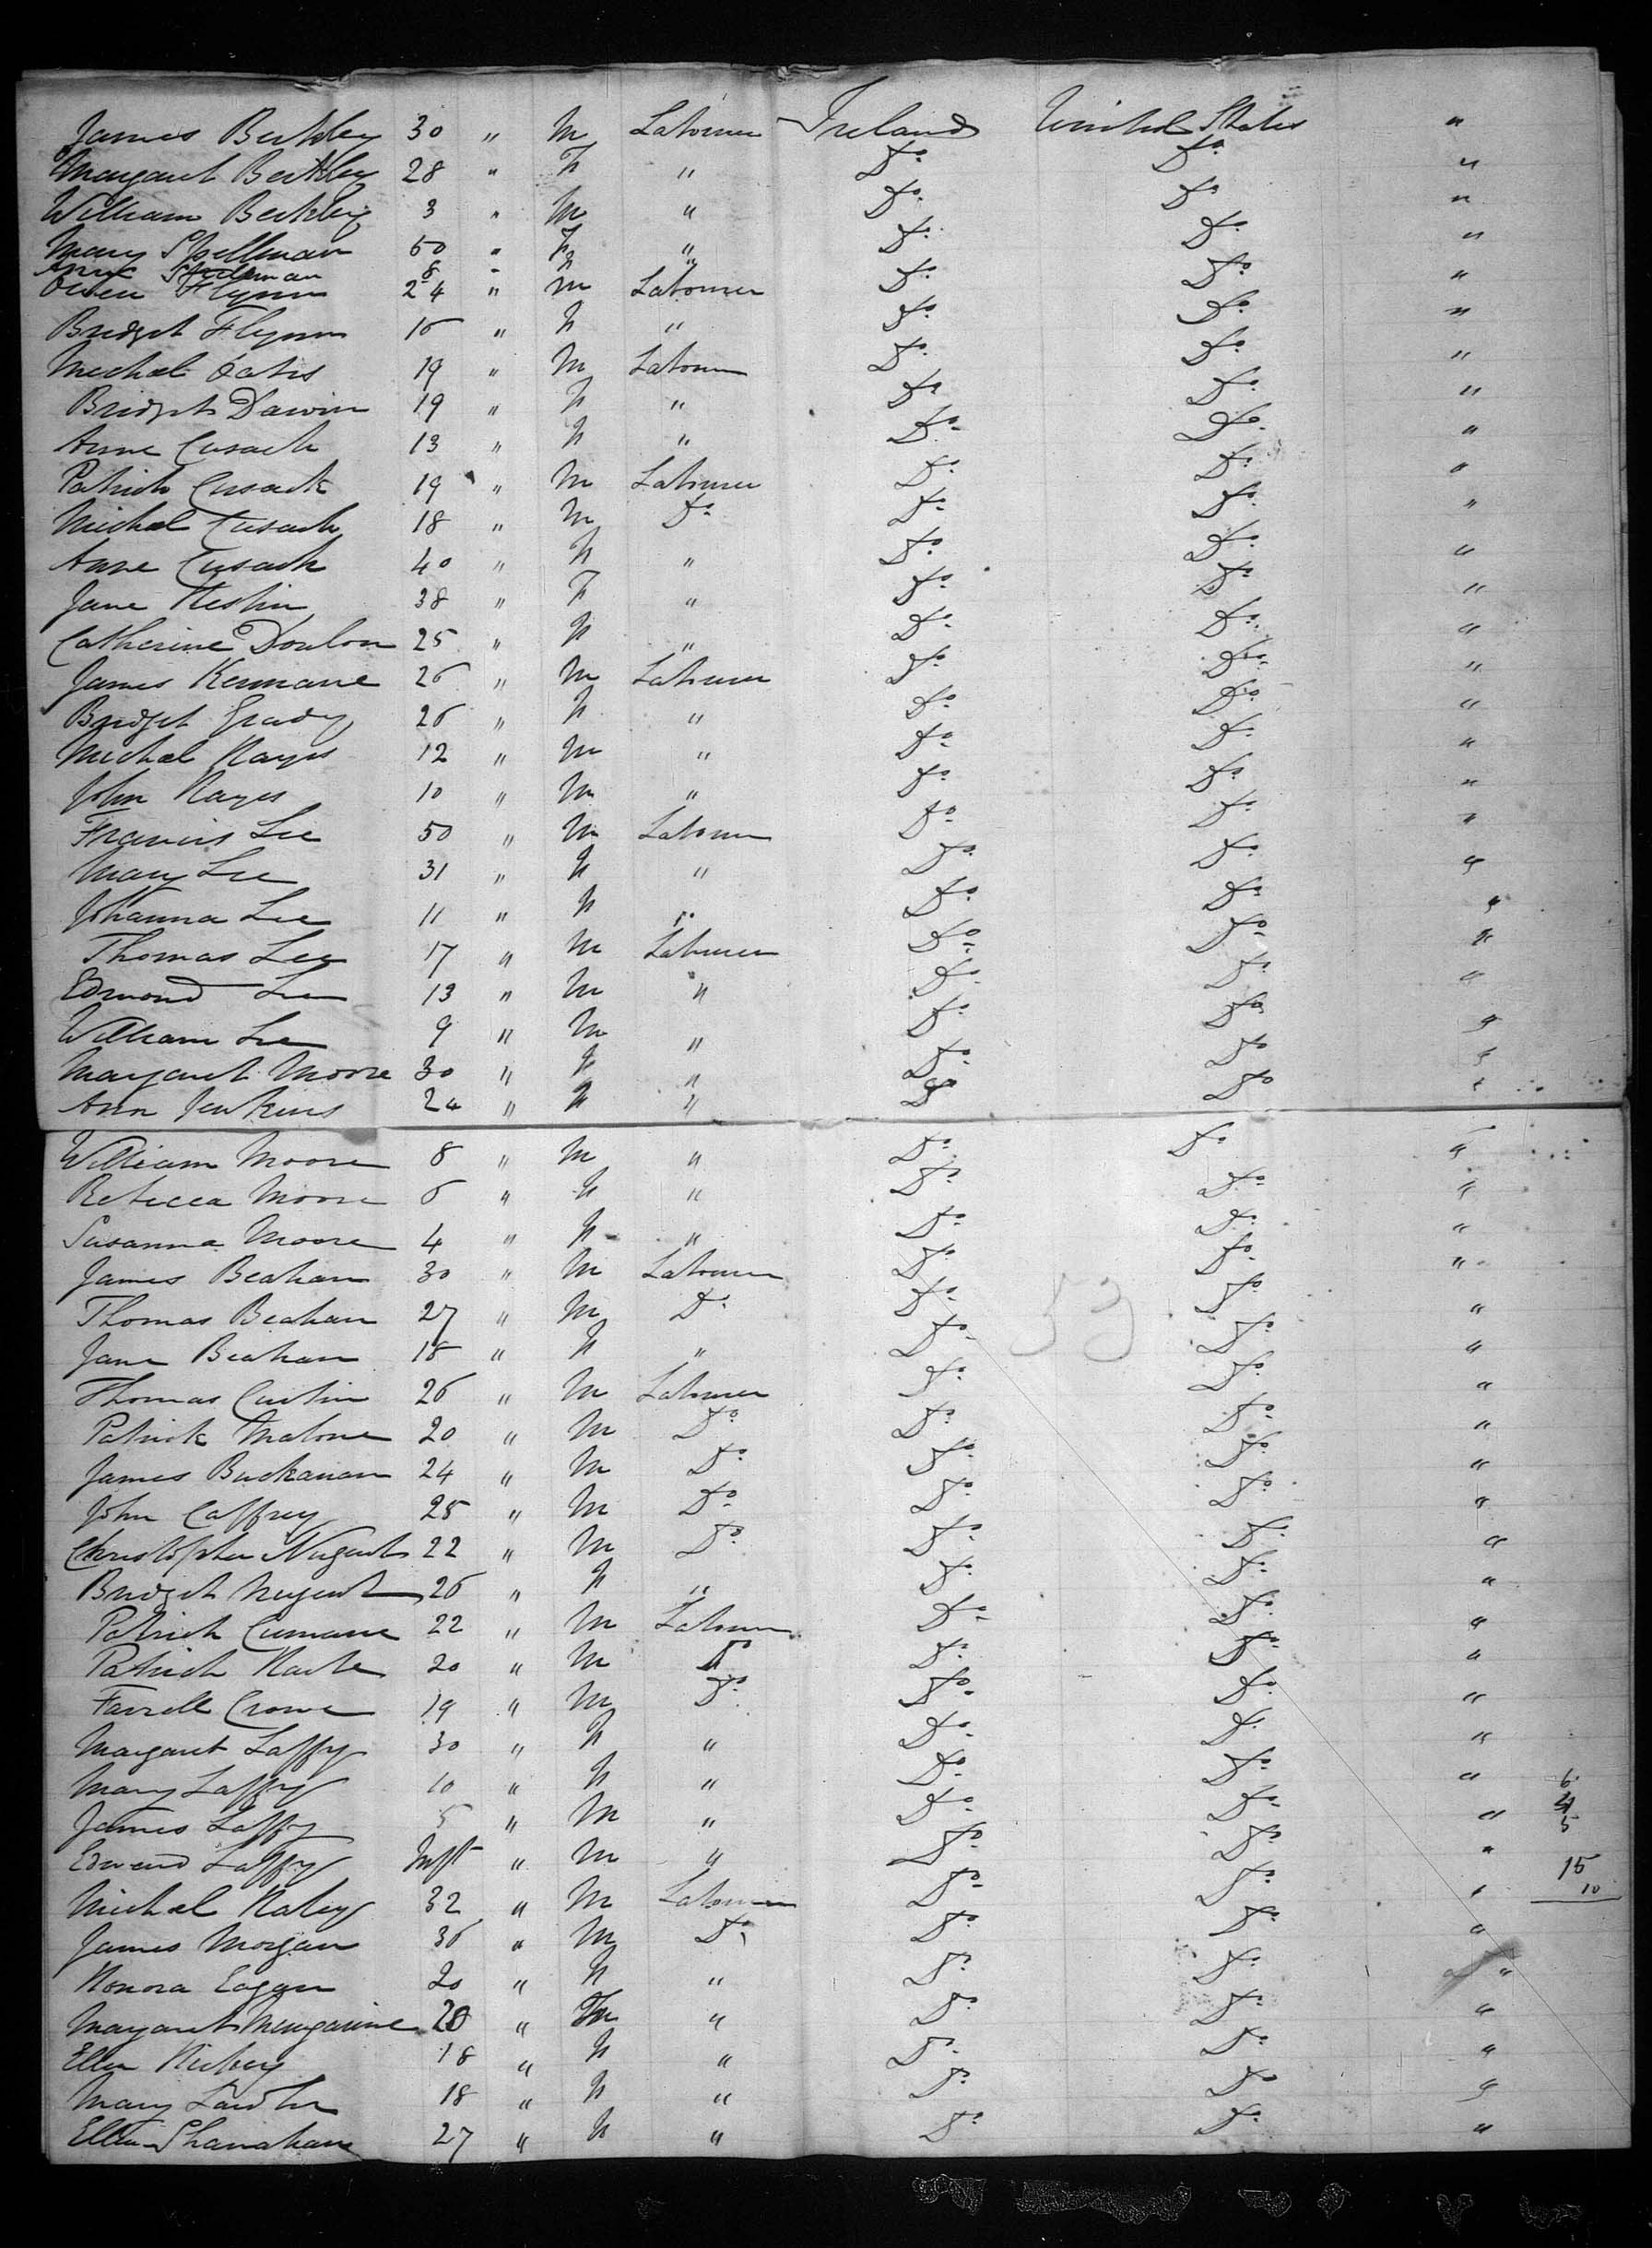 James Berkley 30 " M Labourer Ireland United States "
Margaret Berkley 28 " F " Do Do "
William Berkley 3 " M " Do Do "
Mary Spellman 50 " F " Do Do "
Anne Spellman 8 " F "
Owen Flynn 24 " M Labourer Do Do "
Bridget Flynn 16 " F " Do Do "
Michael Oates 19 " M Labourer Do Do "
Bridget Dawin 19 " F " Do Do "
Anne Cusack 13 " F " Do Do "
Patrick Cusack 19 " M Labourer Do Do "
Michael Cusack 18 " M Do Do Do "
Anne Cusack 40 " F " Do Do "
Jane Heslin 38 " F " Do Do "
Catherine Donlon 25 " F " Do Do "
James Kennane 26 " M Labourer Do Do "
Bridget Grady 26 " F " Do Do "
Michael Hayes 12 " M " Do Do "
John Hayes 10 " M " Do Do "
Francis Lee 50 " M Labourer Do Do "
Mary Lee 31 " F " Do Do "
Johanna Lee 11 " F " Do Do "
Thomas Lee 17 " M Labourer Do Do "
Edmond Lee 13 " M " Do Do "
William Lee 9 " M " Do Do "
Margaret Moore 30 " F " Do Do "
Ann Jenkins 24 " F " Do Do "
William Moore 8 " M " Do Do "
Rebecca Moore 6 " F " Do Do "
Susanna Moore 4 " F " Do Do "
James Beahan 30 " M Labourer Do Do "
53
Thomas Beahan 27 " M Do Do Do "
Jane Beahan 18 " F " Do Do "
Thomas Curtin 26 " M Labourer Do Do "
Patrick Malone 20 " M Do Do Do "
James Buckanan 24 " M Do Do Do "
John Caffrey 25 " M Do Do Do "
Christopher Nugent 22 " M Do Do Do "
Bridget Nugent 26 " F " Do Do "
Patrick Cumane 22 " M Labourer Do Do "
Patrick Harte 20 " M Do Do Do "
Farrell Crowe 19 " M Do Do Do "
Margaret Laffy 30 " F " Do Do "
Mary Laffy 10 " F " Do Do " 6
James Laffy 5 " M " Do Do " 4
5
Edward Laffy Inft " M " Do Do "
15
Michael Haley 32 " M Labourer Do Do " 10
James Morgan 36 " M Do Do Do "
Honora Eagan 20 " F " Do Do "
Margaret 20 " F " Do Do "
Ellen 18 " F " Do Do "
Mary Lawler 18 " F " Do Do "
Ellen Shanahan 27 " F " Do Do "